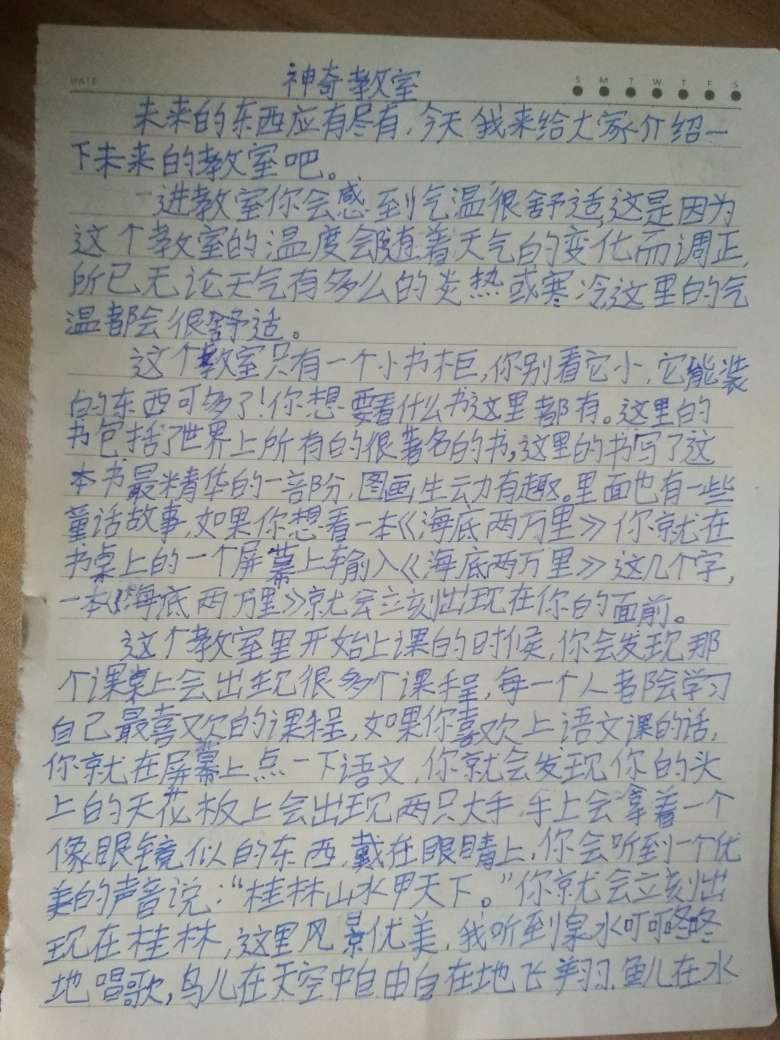 DATE
S M T W T F S
神奇教室
未来的东西应有尽有，今天我来给大家介绍一
下未来的教室吧。
一进教室你会感到气温很舒适，这是因为
这个教室的温度会随着天气的变化而调正，
所已无论天气有多么的炎热或寒冷，这里的气
温都会很舒适。
这个教室只有一个小书柜，你别看它小，它能装
的东西可多了！你想要看什么书这里都有。这里的
书包括了世界上所有的很著名的书，这里的书写了这
本书最精华的一部份，图画生动有趣。里面也有一些
童话故事，如果你想看一本《海底两万里》你就在
书桌上的一个屏幕上输入《海底两万里》这几个字，
一本《海底两万里》就会立刻出现在你的面前。
这个教室里开始上课的时候，你会发现那
个课桌上会出现很多个课程，每一个人都会学习
自己最喜欢的课程，如果你喜欢上语文课的话，
你就在屏幕上点一下语文，你就会发现你的头
上的天花板上会出现两只大手，手上会拿着一个
像眼镜似的东西，戴在眼睛上，你会听到一个优
美的声音说：“桂林山水甲天下。”你就会立刻出
现在桂林，这里风景优美，我听到泉水叮叮咚咚
地唱歌，鸟儿在天空中自由自在地飞翔，鱼儿在水